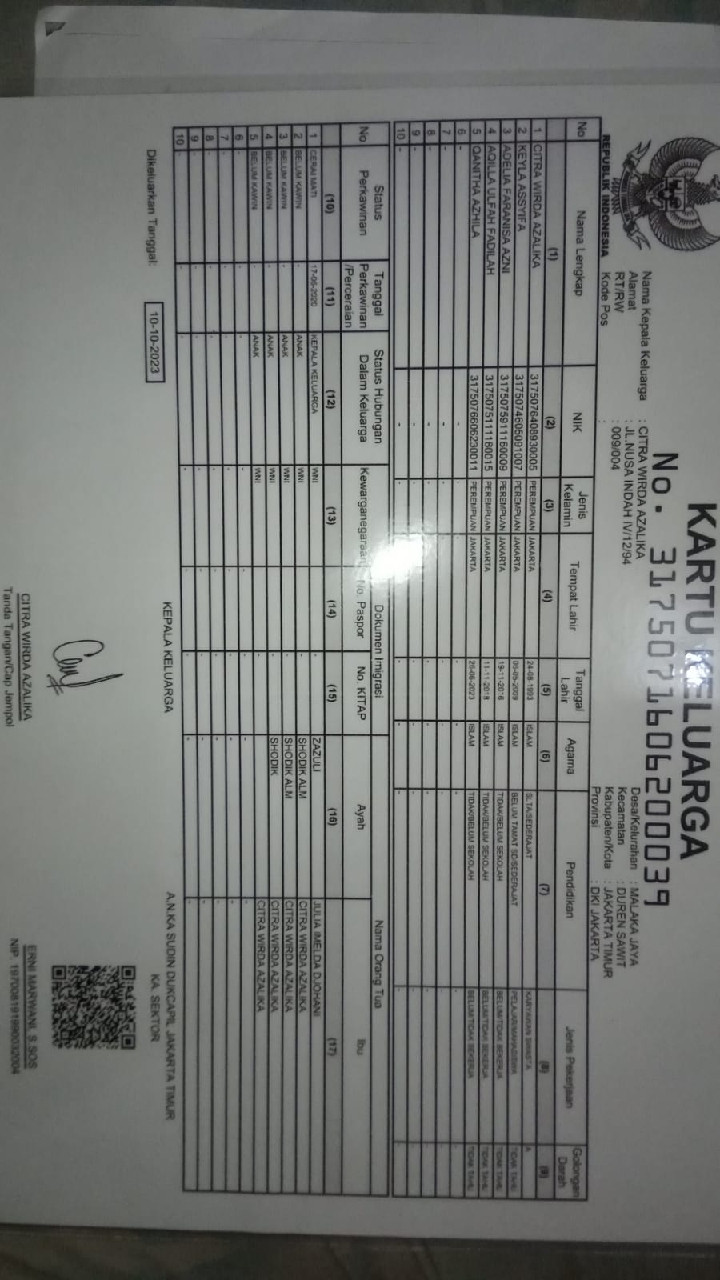 KARTU KELUARGA
No. 3175071606200039
REPUBLIK INDONESIA
Nama Kepala Keluarga : CITRA WIRDA AZALIKA
Alamat : JL.NUSA INDAH IV/12/94
RT/RW : 009/004
Kode Pos :
Desa/Kelurahan : MALAKA JAYA
Kecamatan : DUREN SAWIT
Kabupaten/Kota : JAKARTA TIMUR
Provinsi : DKI JAKARTA
No Nama Lengkap NIK Jenis Kelamin Tempat Lahir Tanggal Lahir Agama Pendidikan Jenis Pekerjaan Golongan Darah
(1) (2) (3) (4) (5) (6) (7) (8) (9)
1 CITRA WIRDA AZALIKA 3175076408930005 PEREMPUAN JAKARTA 24-08-1993 ISLAM SLTA/SEDERAJAT KARYAWAN SWASTA A
2 KEYLA ASSYIFA PEREMPUAN JAKARTA ISLAM BELUM TAMAT SD/SEDERAJAT PELAJAR/MAHASISWA TIDAK TAHU
3 ADELIA FARANISA AZNI 3175075911160009 PEREMPUAN JAKARTA 19-11-2016 ISLAM TIDAK/BELUM SEKOLAH BELUM/TIDAK BEKERJA TIDAK TAHU
4 AQILLA ULFAH FADILAH 3175075111180015 PEREMPUAN JAKARTA 11-11-2018 ISLAM TIDAK/BELUM SEKOLAH BELUM/TIDAK BEKERJA TIDAK TAHU
5 QANITHA AZHILA 3175076606230011 PEREMPUAN JAKARTA 26-06-2023 ISLAM TIDAK/BELUM SEKOLAH BELUM/TIDAK BEKERJA TIDAK TAHU
6 -
7 -
8 -
9 -
10 -
No Status Perkawinan Tanggal Perkawinan /Perceraian Status Hubungan Dalam Keluarga Kewarganegaraan Dokumen Imigrasi No. Paspor No. KITAP Nama Orang Tua Ayah Ibu
(10) (11) (12) (13) (14) (15) (16) (17)
1 CERAI MATI 17-06-2020 KEPALA KELUARGA WNI - - ZAZULI JULIA IMELDA DJOHANI
2 BELUM KAWIN - ANAK WNI - - SHODIK ALM CITRA WIRDA AZALIKA
3 BELUM KAWIN - ANAK WNI - - SHODIK ALM CITRA WIRDA AZALIKA
4 BELUM KAWIN - ANAK WNI - - SHODIK CITRA WIRDA AZALIKA
5 BELUM KAWIN - ANAK WNI - - CITRA WIRDA AZALIKA
6 -
7 -
8 -
9 -
10 -
Dikeluarkan Tanggal: 10-10-2023
KEPALA KELUARGA
CITRA WIRDA AZALIKA
Tanda Tangan/Cap Jempol
A.N.KA SUDIN DUKCAPIL JAKARTA TIMUR
KA. SEKTOR
ERNI MARWANI, S.SOS